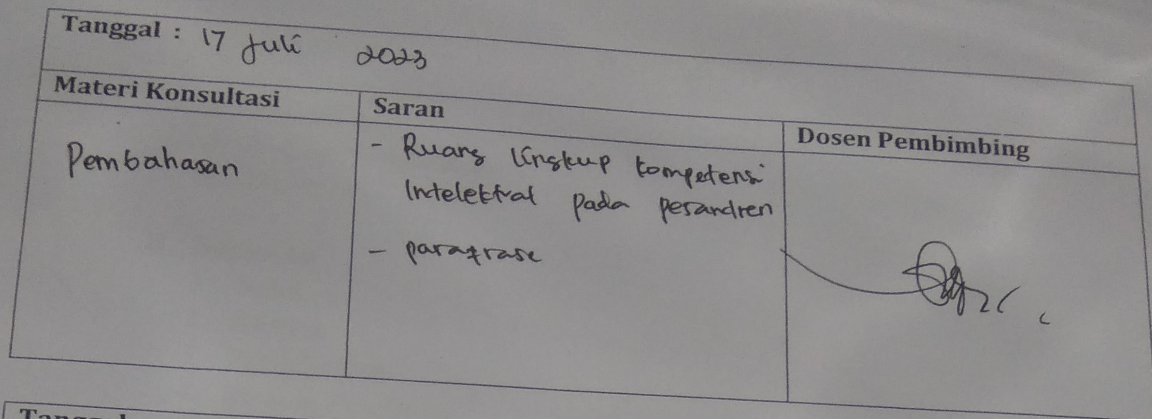 Tanggal : 17 Juli 2023
Materi Konsultasi
Saran
Dosen Pembimbing
Pembahasan
- Ruang lingkup kompetensi
Intelektual pada pesantren
- parafrase